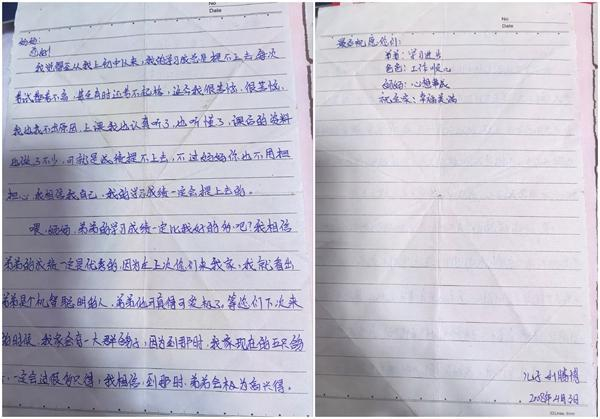 No
Date
妈妈:
您好!
我觉得自从我上初中以来,我的学习成绩总是提不上去每次
考试都考不高,甚至有时还考不起格,这令我很苦恼、很苦恼、
我也找不出原因,上课我也认真听了,也听懂了,课后的资料
也做了不少,可就是成绩提不上去,不过妈妈你也不用担
担心,我相信我自己,我的学习成绩一定会提上去的。
嘿,妈妈,弟弟的学习成绩一定比我好的多吧?我相信
弟弟的成绩一定是优秀的,因为在上次你们来我家,我就看出
弟弟是个机智聪明的人,弟弟他可真得可爱极了。等您们下次来
的时候,我家会有一大群鸽子,因为到那时,我家现在的五只鸽
一定会过很多只得,我相信,到那时,弟弟会极为高兴得。
No
Date
最后祝愿你们:
弟弟:学习进步
爸爸:工作顺心
妈妈:心想事成
祝全家:幸福美满
儿子 刘腾博
2008年4月3日